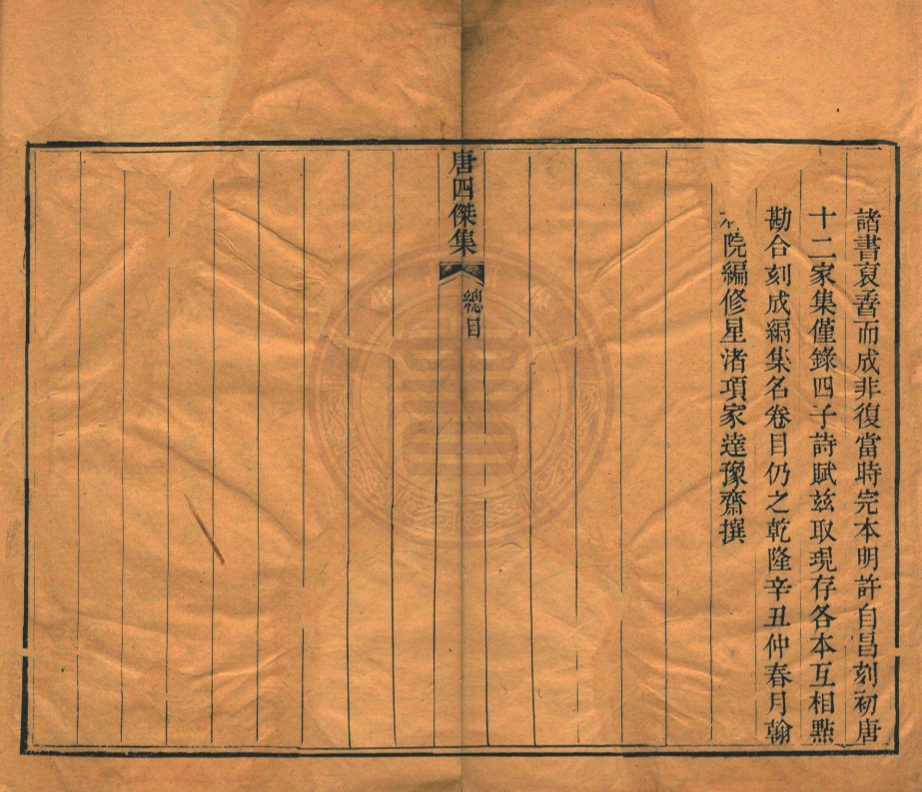 諸書裒萶而成非復當時完本明許自昌刻初唐
十二家集僅錄四子詩賦兹取現存各本互相㸃
勘合刻成編集名卷目仍之乾隆辛丑仲春月翰
院編修星渚項家達豫齋撰
唐四傑集
總目